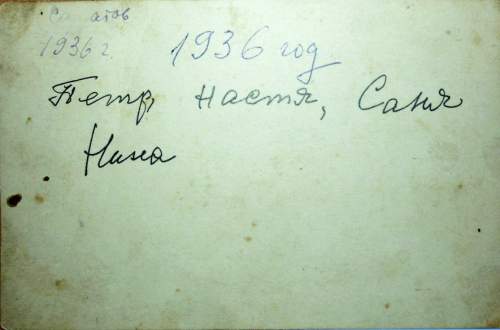 1936 г.
1936 год
Петр, Настя, Саня
Нина